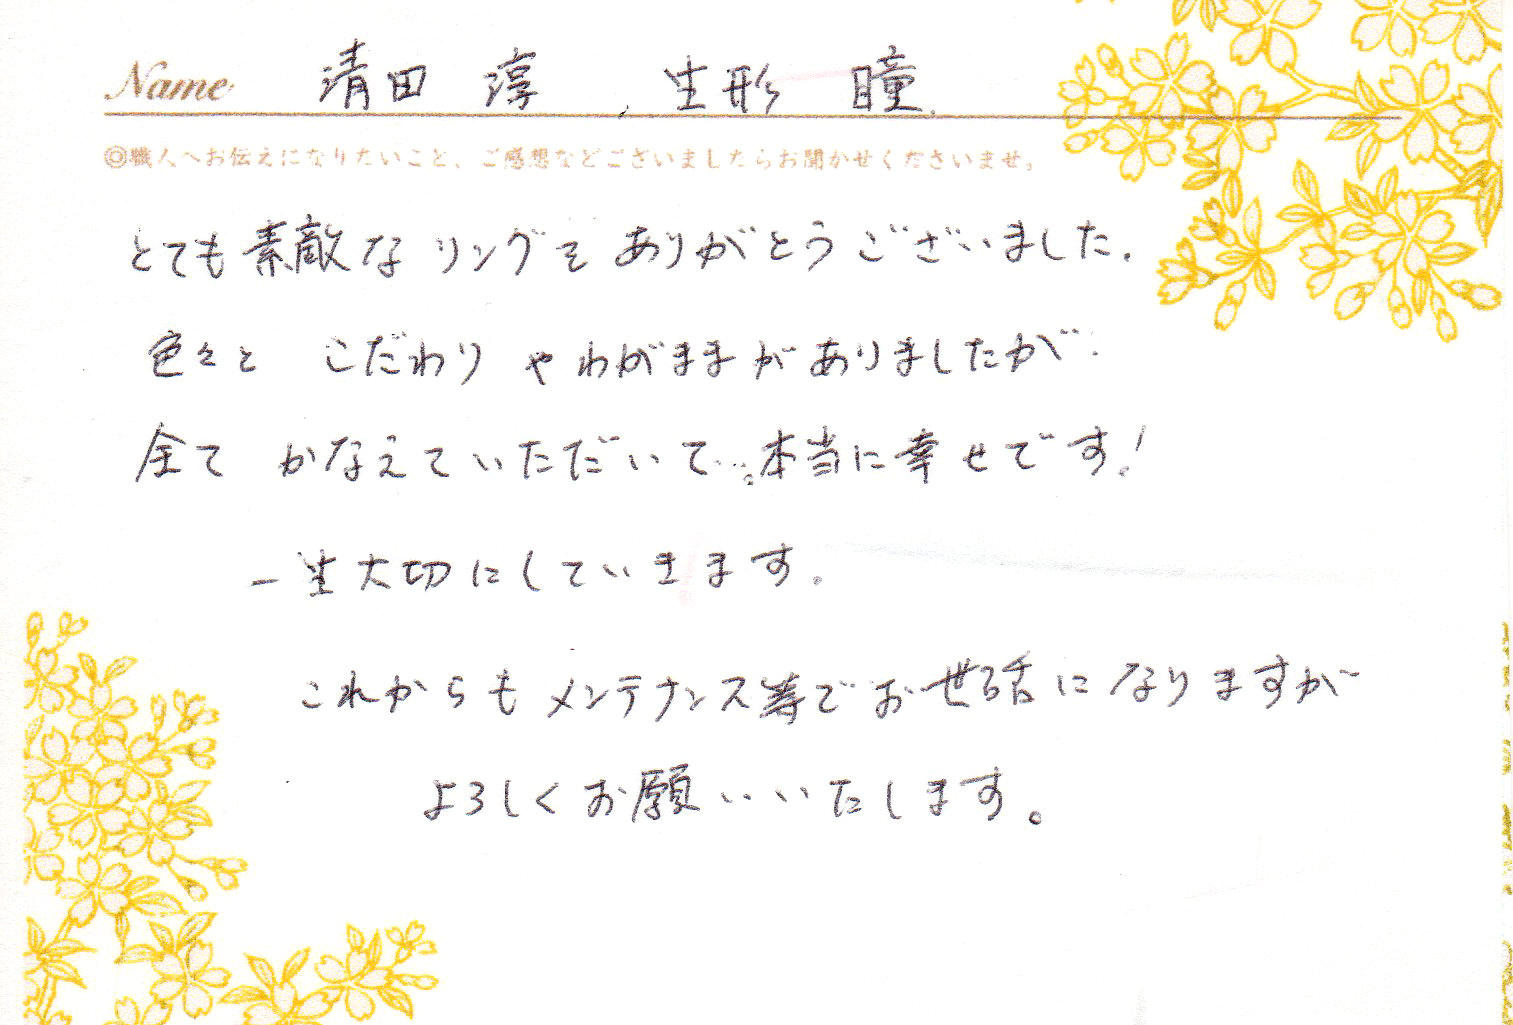 Name 清田 淳 生形 瞳
◎職人へお伝えになりたいこと、ご感想などございましたらお聞かせくださいませ。
とても素敵なリングをありがとうございました。
色々と こだわり やわがままがありましたが
全て かなえていただいて…。本当に幸せです!
一生大切にしていきます。
これからもメンテナンス等でお世話になりますが
よろしくお願いいたします。